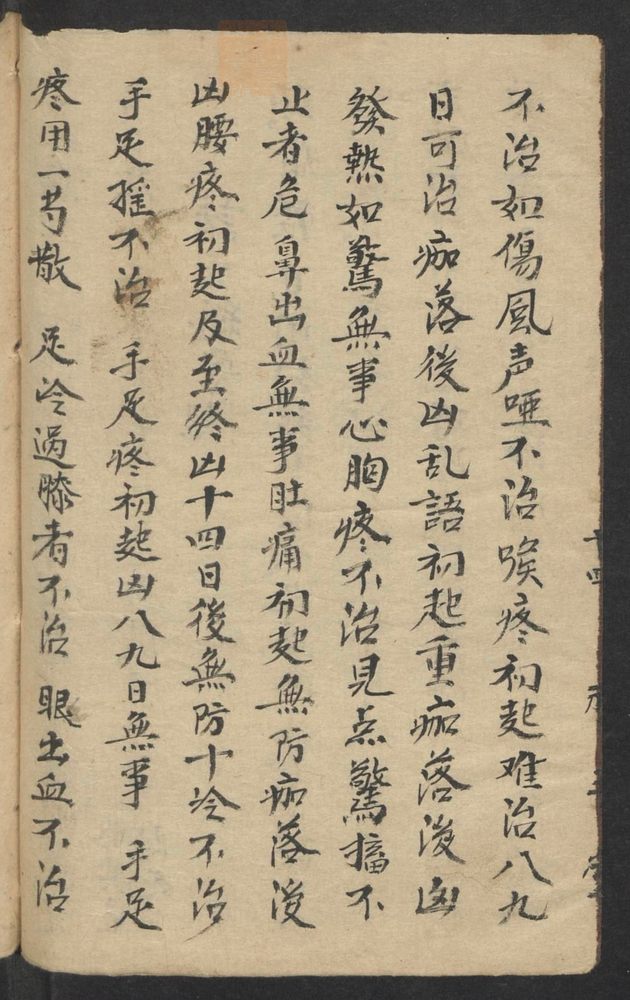 不治如傷風声啞不治喉疼初起难治八九
日可治痂落後凶乱語初起重痂落後凶
發熱如驚無事心胸疼不治見点驚搐不
止者危 鼻出血無事肚痛初起無防痂落後
凶腰疼初起及至終凶十四日後無防十冷不治
手足摇不治 手足疼初起凶八九日無事 手足
疼用一芍散 足冷過膝者不治 眼出血不治
十四